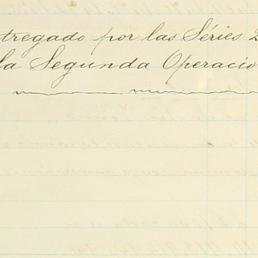 tregado por las Séries 2
la Segunda Operacio